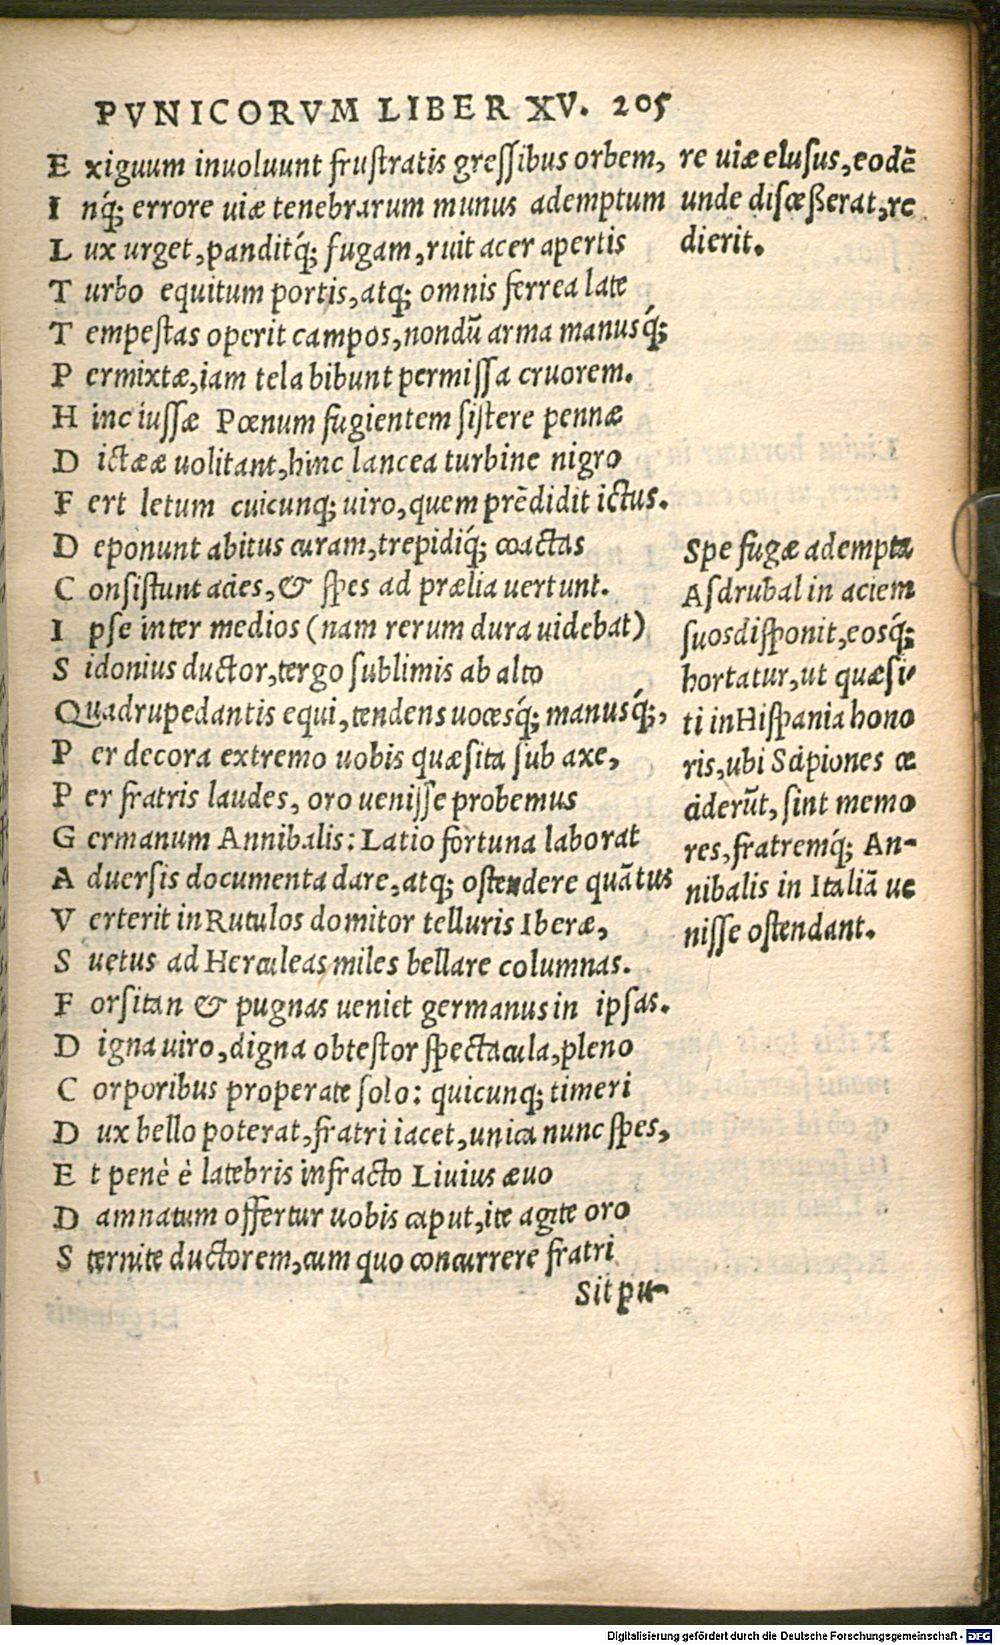 PVNICORVM LIBER XV. 205
E xiguum inuoluunt frustratis gressibus orbem,
I nq́; errore uiæ tenebrarum munus ademptum
L ux urget, panditq́; fugam, ruit acer apertis
T urbo equitum portis, atq; omnis ferrea late
T empestas operit campos, nondū arma manusq́;
P ermixtæ, iam tela bibunt permissa cruorem.
H inc iussæ Pœnum fugientem sistere pennæ
D ictææ uolitant, hinc lancea turbine nigro
F ert letum cuicunq; uiro, quem prēdidit ictus.
D eponunt abitus curam, trepidiq́; coactas
C onsistunt acies, & spes ad prælia uertunt.
I pse inter medios (nam rerum dura uidebat)
S idonius ductor, tergo sublimis ab alto
Quadrupedantis equi, tendens uocesq́; manusq́;,
P er decora extremo uobis quæsita sub axe,
P er fratris laudes, oro uenisse probemus
G ermanum Annibalis: Latio fortuna laborat
A duersis documenta dare, atq; ostendere quātus
V erterit in Rutulos domitor telluris Iberæ,
S uetus ad Herculeas miles bellare columnas.
F orsitan & pugnas ueniet germanus in ipsas.
D igna uiro, digna obtestor spectacula, pleno
C orporibus properate solo: quicunq; timeri
D ux bello poterat, fratri iacet, unica nunc spes,
E t penè è latebris infracto Liuius æuo
D amnatum offertur uobis caput, ite agite oro
S ternite ductorem, cum quo concurrere fratri
Sit pu-
re uiæ elusus, eodē
unde discæßerat, re
dierit.
Spe fugæ adempta
Asdrubal in aciem
suos disponit, eosq́;
hortatur, ut quæsi-
ti in Hispania hono
ris, ubi Scipiones ce
ciderūt, sint memo
res, fratremq́; An-
nibalis in Italiā ue
nisse ostendant.
Digitalisierung gefördert durch die Deutsche Forschungsgemeinschaft - DFG